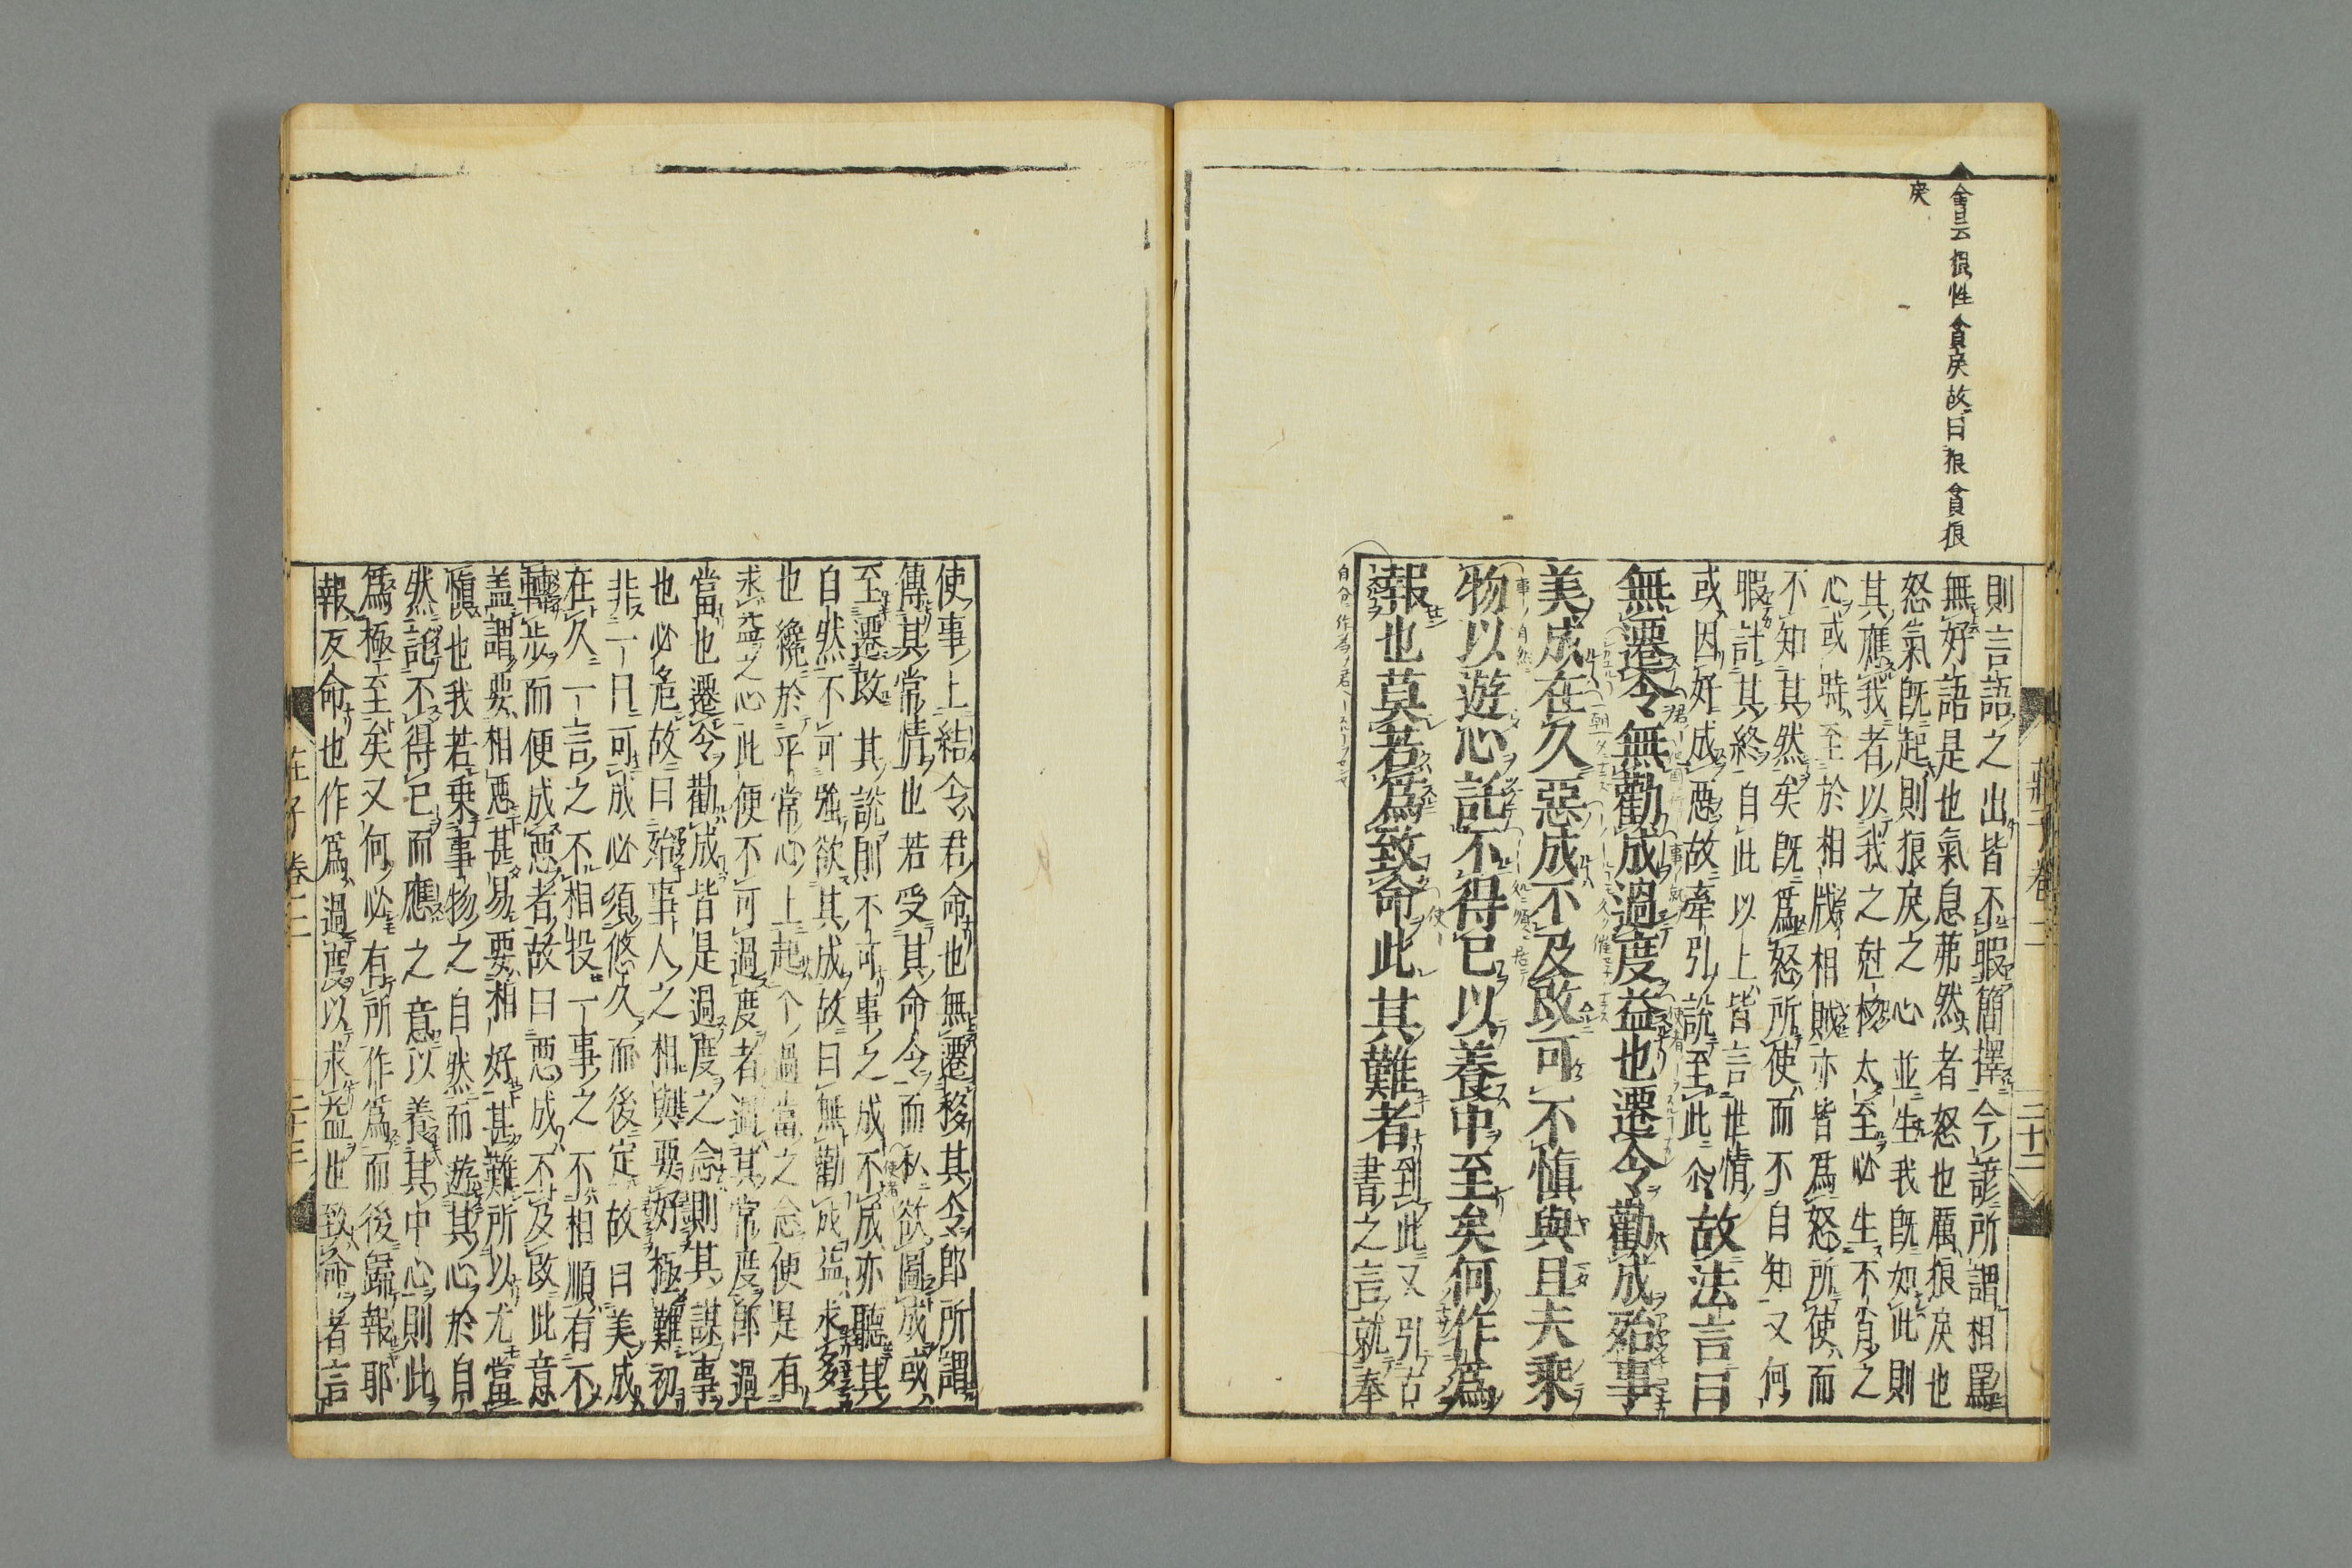 會云狠性貪戾故曰狠貪狠
戾
則言語之出皆不暇簡擇今諺所謂相罵
無好語是也氣息茀然者怒也厲狠戾也
怒氣既起則狠戾之心並生我既如此則
其應我者以我之尅核太至必生不肖之
心或時至於相戕相賊亦皆爲怒所使而
不知其然矣既爲怒所使而不自知又何
暇計其終自此以上皆言世情
或因好成惡故牽引說至此尒故法言曰
無遷令無勸成過度益也遷令勸成殆事
美成在久惡成不及改可不慎與且夫乘
物以遊心託不得已以養中至矣何作爲
報也莫若爲致命此其難者到此又引古
書之言就奉
莊子卷二
三十二
使事上結令君命也無遷移其令郎所謂
傳其常情也若受其命令而私欲圖成或
至遷改其說則不可事之成不成亦聽其
自然不可強欲其成故曰無勸成益求多
也纔於平常心上起个過當之念便是有
求益之心此便不可過度者過其常度郎過
當也遷令勸成皆是過度之念則其謀事
也必危故曰殆事人之相與要好極難初
非一日可成必須悠久而後定故曰美成
在久一言之不相投一事之不相順有不
轉步而便成惡者故曰惡成不及改此意
盖謂要相惡甚易要相好甚難所以尤當
慎也我若乘事物之自然而遊其心於自
然託不得已而應之意以養其中心則此
爲極至矣又何必有所作爲而後歸報耶
報反命也作爲過度以求益也致命者言